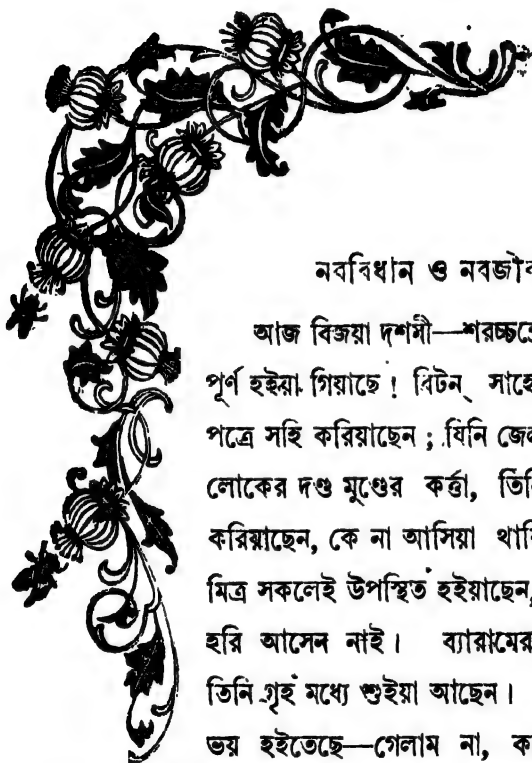 নববিধান ও নবজীব
আজ বিজয়া দশমী—শরচ্চন্দ্রে
পূর্ণ হইয়া গিয়াছে ! বিটন্ সাহে
পত্রে সহি করিয়াছেন ; যিনি জেল
লোকের দণ্ড মুণ্ডের কর্ত্তা, তিনি
করিয়াছেন, কে না আসিয়া থাকি
মিত্র সকলেই উপস্থিত হইয়াছেন,
হরি আসেন নাই। ব্যারামের
তিনি গৃহ মধ্যে শুইয়া আছেন।
ভয় হইতেছে—গেলাম না, ক